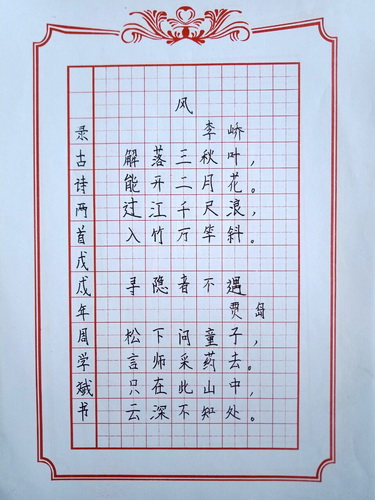 风
李峤
解落三秋叶，
能开二月花。
过江千尺浪，
入竹万竿斜。
寻隐者不遇
贾岛
松下问童子，
言师采药去。
只在此山中，
云深不知处。
录古诗两首戊戌年周学斌书